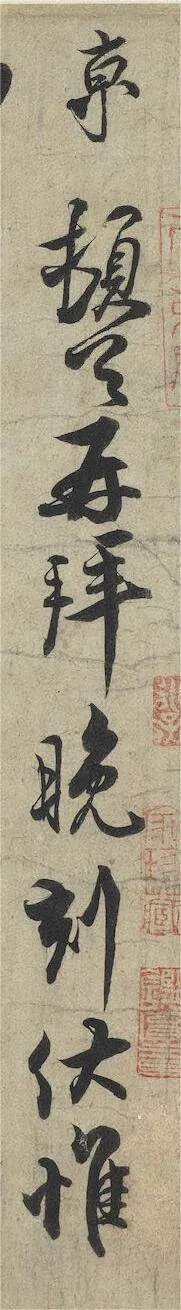 京頓首再拜晚刻伏惟